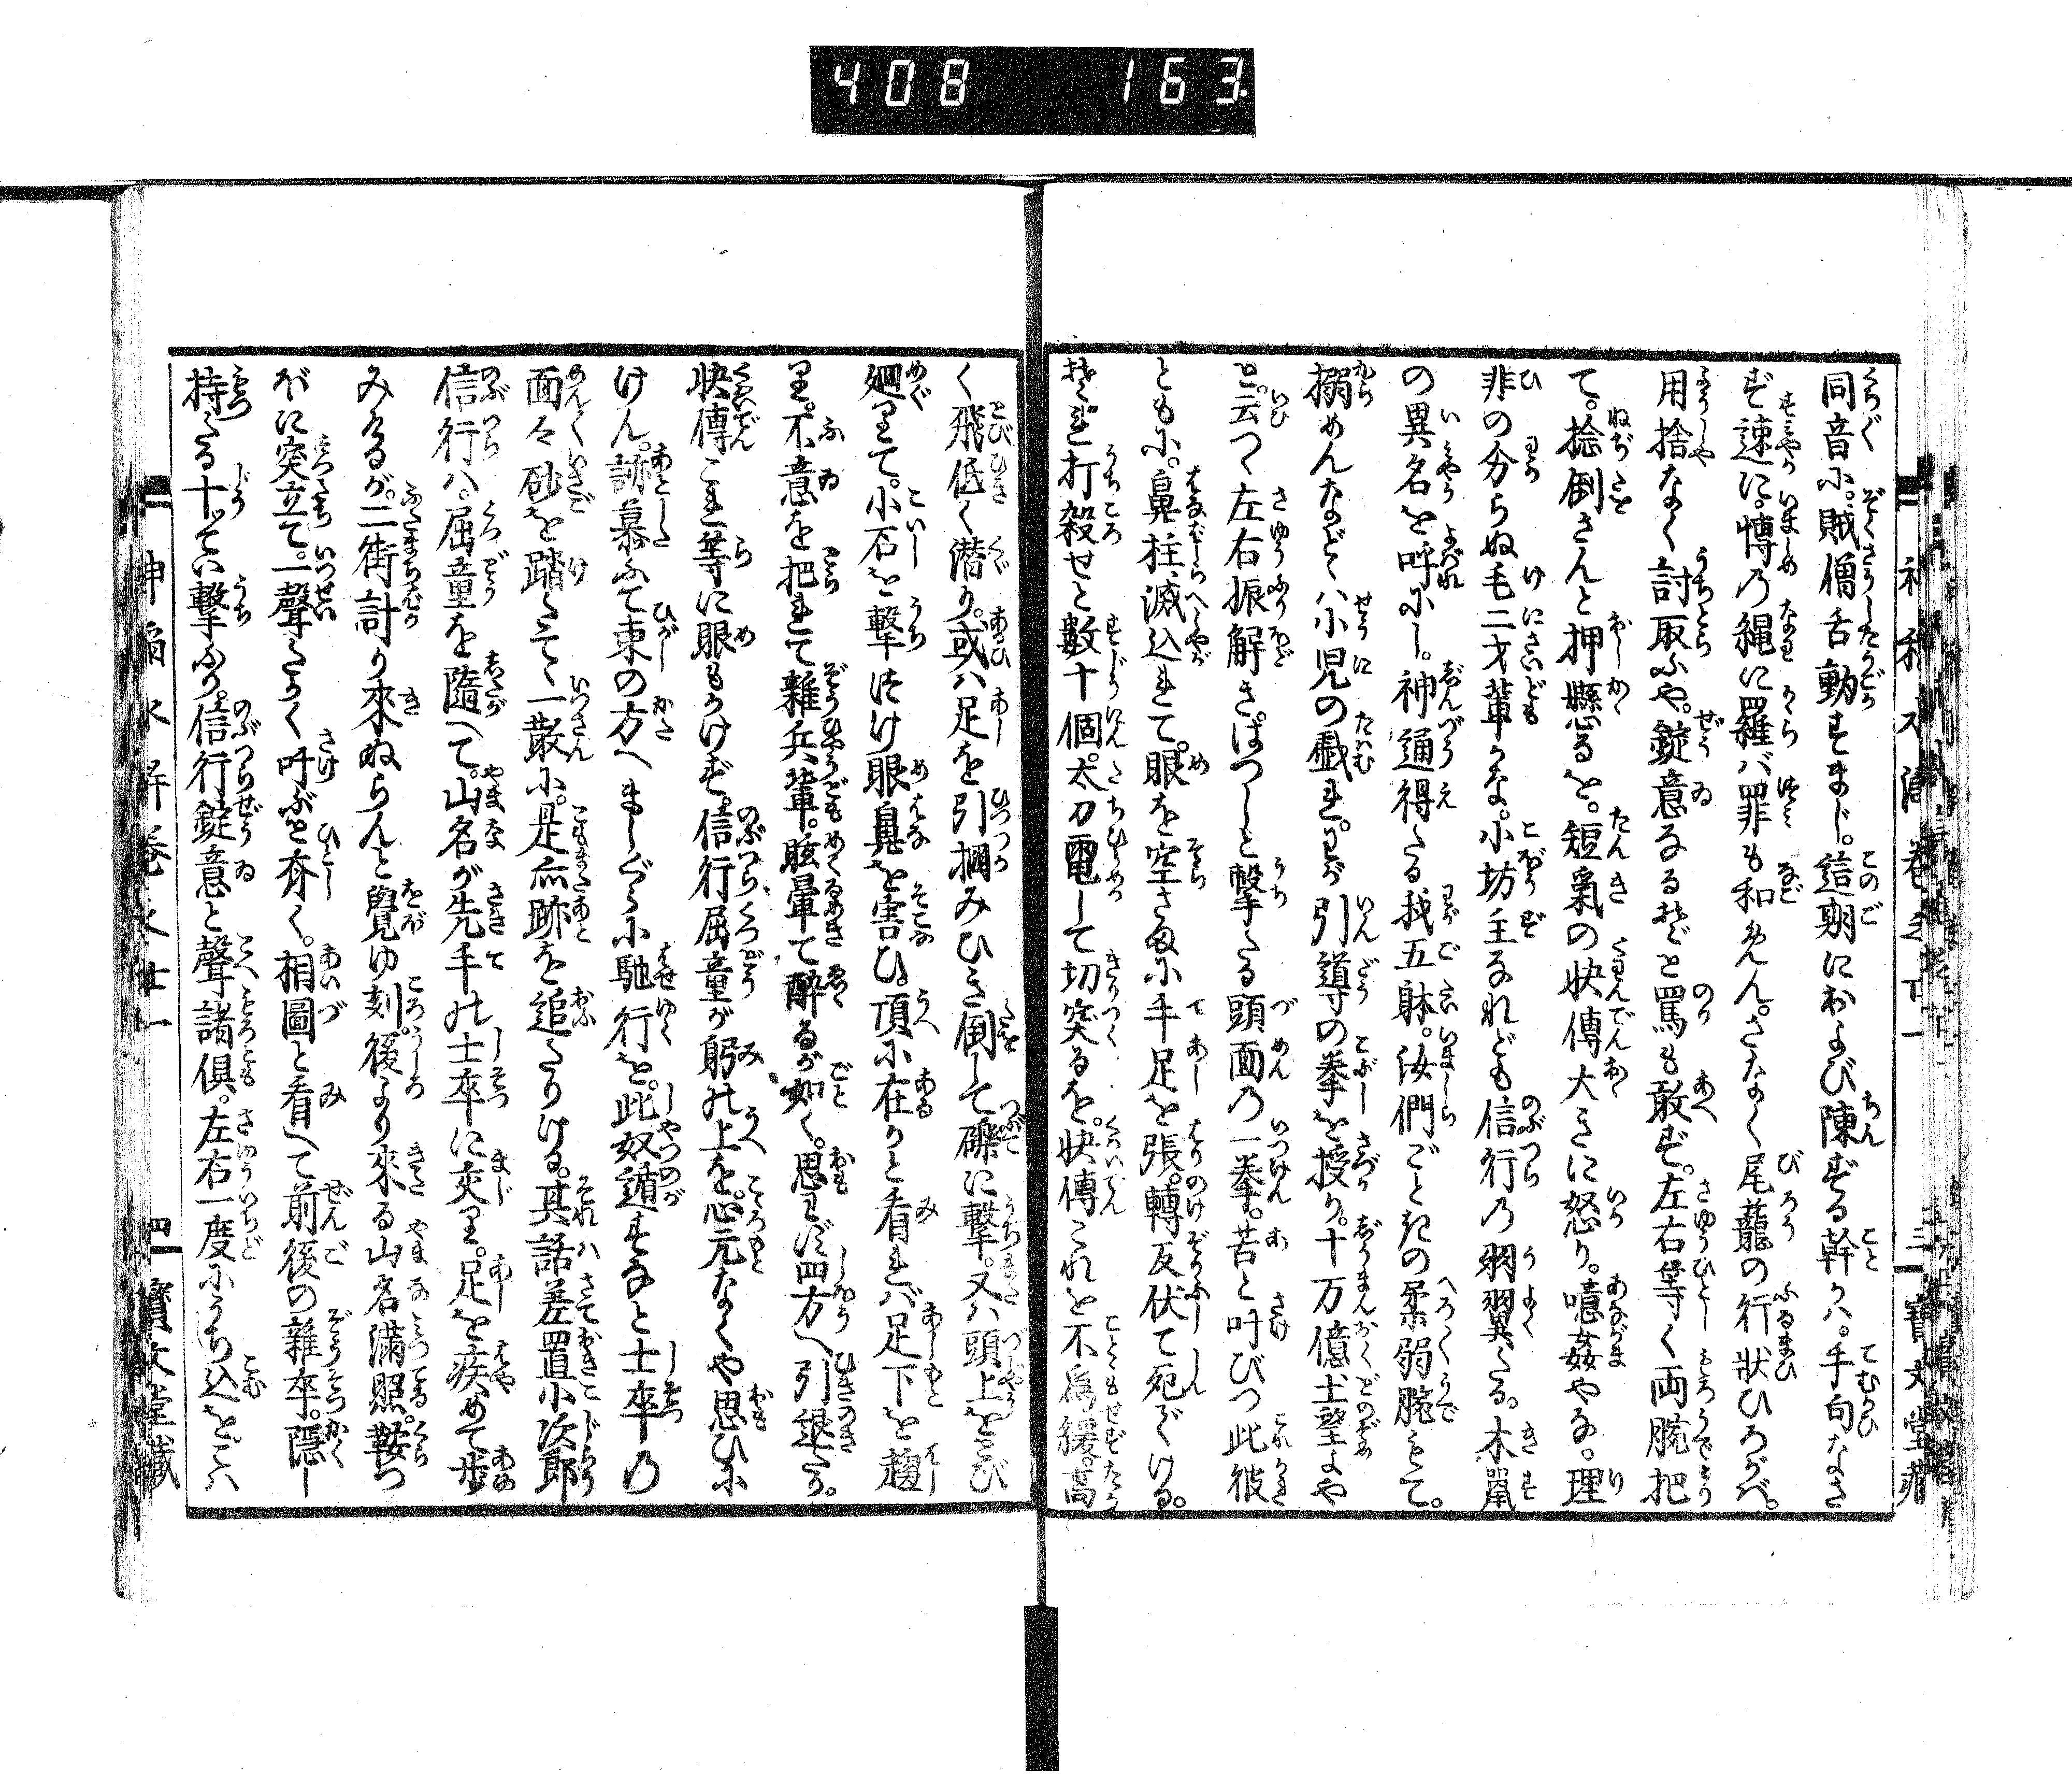 408 163
同音に。賊僧舌動すまじ。這期におよび陳ずる幹かハ。手向なさ
ず速に。愽の縄に羅バ罪も和めん。さなく尾蘢の行状ひろがバ。
用捨なく討取ふや。錠意なるぞと罵も敢ず。左右等く両腕把
て。捻倒さんと押懸るを。短氣の快傳大きに怒り。噫姦やな。理
非の分らぬ毛二才輩かな。小坊主なれども信行の羽翼たる。木鼠
の異名を呼れし。神通得たる我五躰。汝們ごときの柔弱腕もて。
搦めんなどゝハ小児の戯れ。わが引導の拳を授り。十万億土望よや
と。云つゝ左右振解き。はつしと撃たる頭面の一拳。苦と叫びつ此彼
ともに。鼻柱滅込れて。眼を空さ方に手足を張。轉反伏て死でける。
それ打殺せと数十個。太刀電して切突るを。快傳これを不為緩。高
く飛低く潜り。或ハ足を引摑みひき倒して礫に撃。又ハ頭上をとび
廻りて。小石を撃つけ眼鼻を害ひ。頂に在かと看れバ足下を趨
り。不意を把れて雜兵輩。眩暈て酔るが如く。思わず四方へ引退たり。
快傳これ等に眼もかけず。信行屈童が躬の上を。心元なくや思ひに
けん。跡慕ふて東の方へましぐらに馳行を。此奴遁すなと士卒の
面々砂を踏たてゝ一散に。是亦跡を追たりける。其話ハ差置小次郎
信行ハ。屈童を隨へて。山名が先手の士卒に交り。足を疾めて歩
みけるが。二街計り來ぬらんと覺ゆ刻。後より來る山名滿照。鞍つ
ぼに突立て。一聲たかく叫ぶと齊く。相圖と看へて前後の雜卒。隱し
持たる十ッてい撃ふり。信行錠意と聲諸倶。左右一度にうち込を。こハ